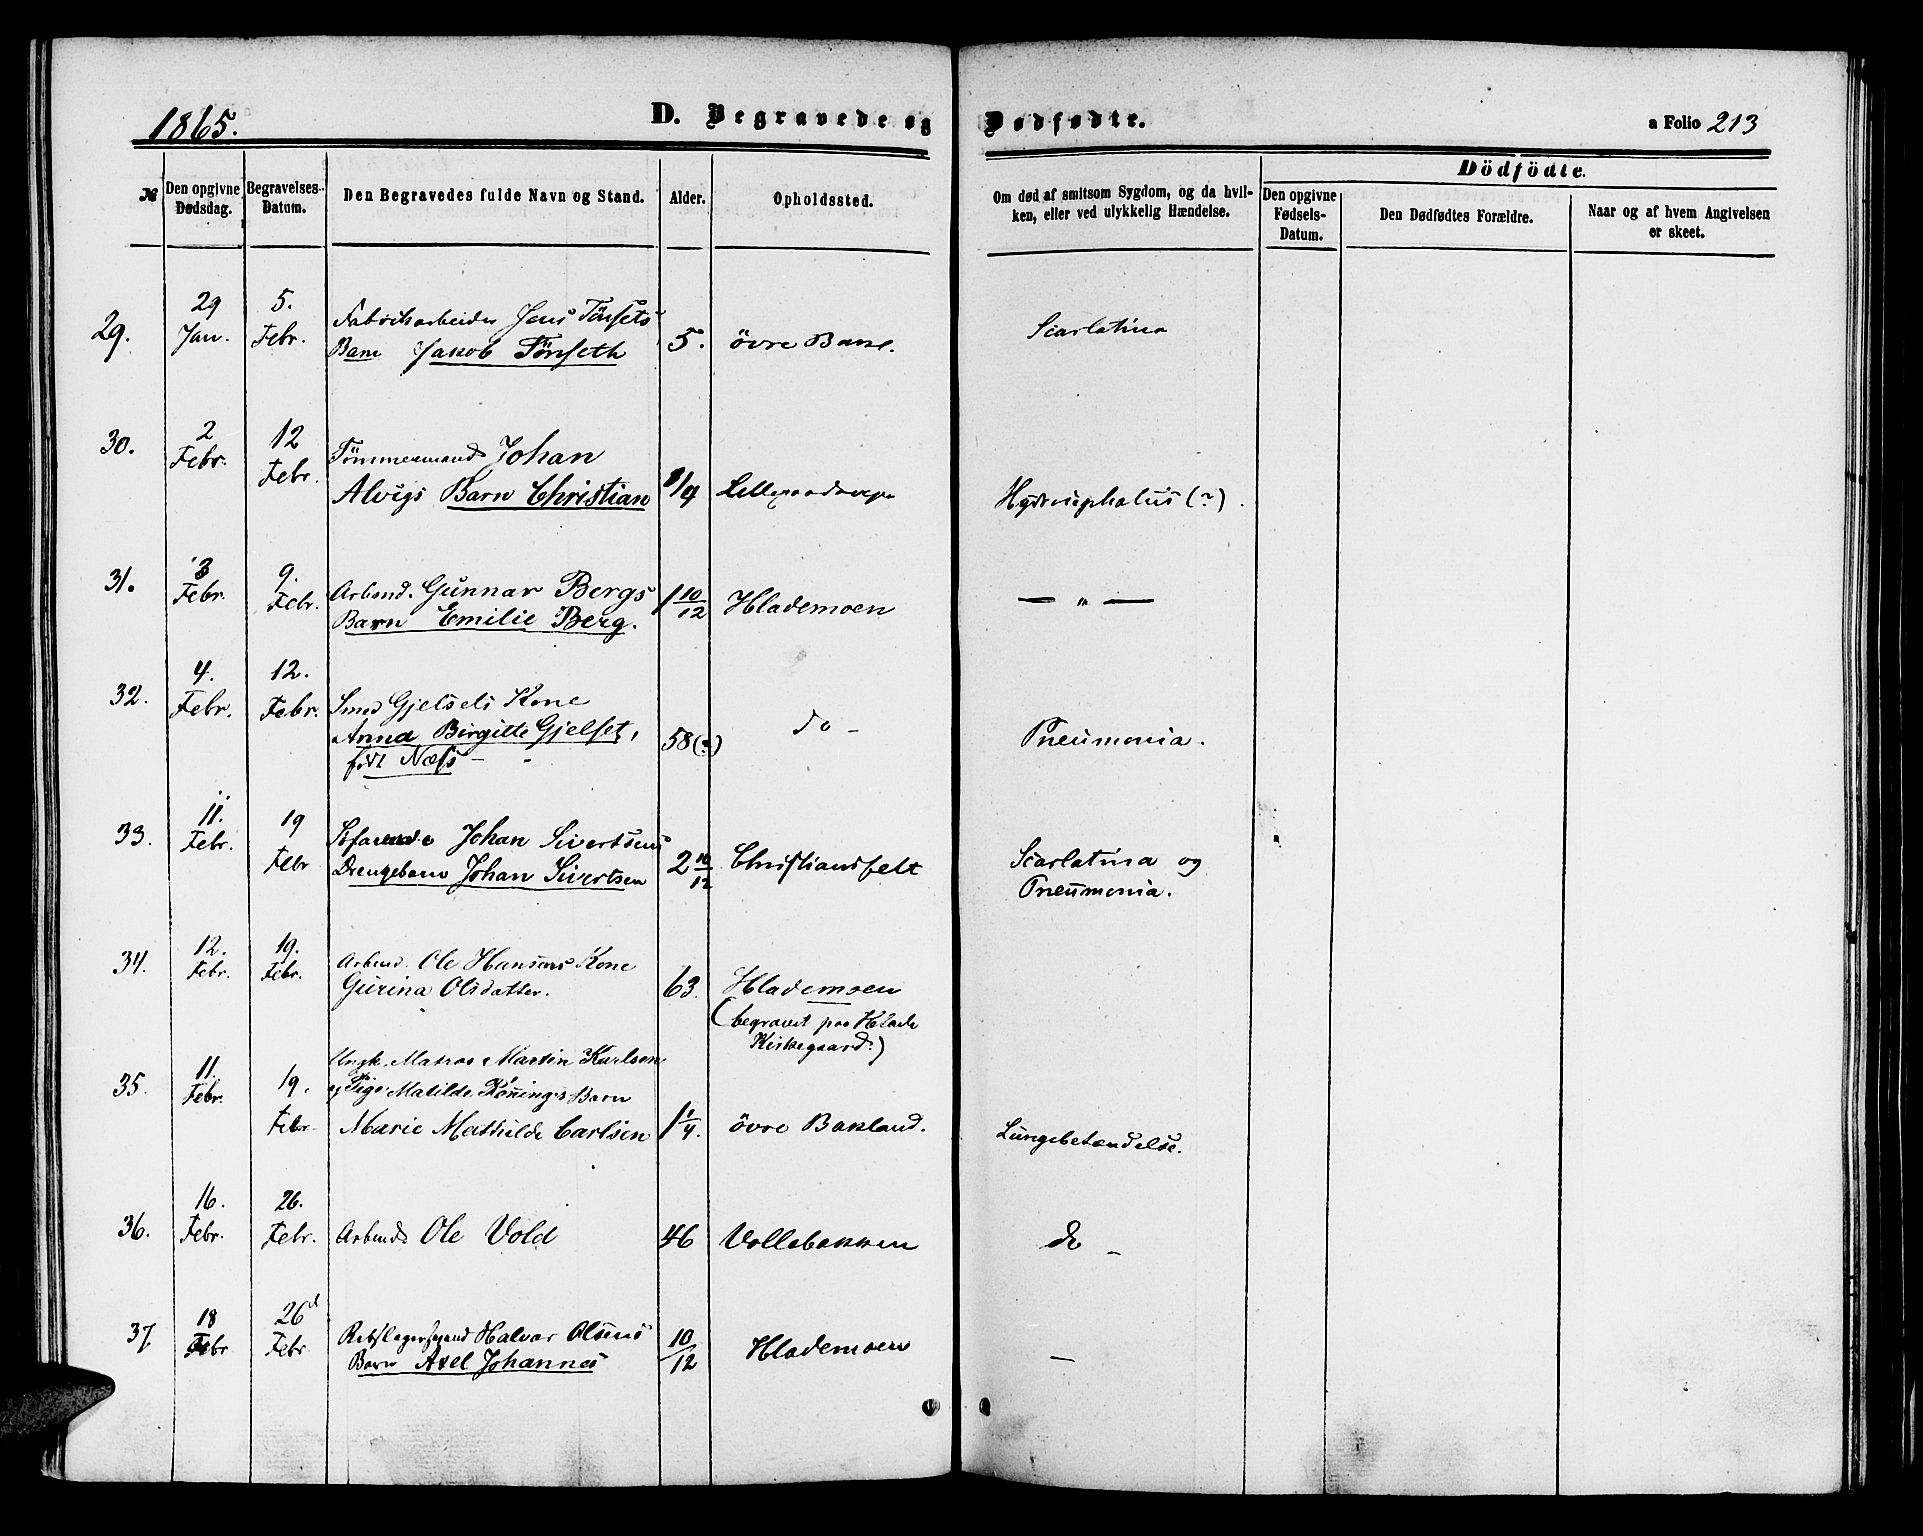 1865.
D. Begravede og Dødfødte.
a Folio 213
№
Den opgivne Dødsdag.
Begravelses-Datum.
Den Begravedes fulde Navn og Stand.
Alder.
Opholdssted.
Om død af smitsom Sygdom, og da hvil-
ken, eller ved ulykkelig Hændelse.
Dödfödte.
Den opgivne Fødsels-Datum.
Den Dødfødtes Forældre.
Naar og af hvem Angivelsen
er skeet.
29. 29 Jan. 5. Febr. Fabrikarbeider Jens Tönsets
Barn Jakob Tönseth 5. övre Bakl. Scarlatina
30. 2 Febr. 12 Febr. Tömmermand Johan
Alvigs Barn Christian 3/4 Hydrocephalus (?).
31. 3 Febr. 9. Febr. Arbmd. Gunnar Bergs
Barn Emilie Berg. 1 10/12 Hlademoen — " —
32. 4. Febr. 12. Febr. Smed Gjelsets Kone
Anna Birgitte Gjelset, 58 (?) do - Pneumonia.
födt Næss -
33. 11. Febr. 19 Febr Johan Sivertsens
Drengebarn Johan Sivertsen 2 10/12 Christiansfelt Scarlatina og
Pneumonia.
34. 12. Febr. 19. Febr. Arbmd. Ole Hansens Kone
Gurina Olsdatter. 63. Hlademoen
(begravet paa Hlade
Kirkegaard.)
35. 11. Febr. 19. Febr. Ungk. Matros Martin Karlsen
og Pige Matilde Könings Barn
Marie Mathilde Carlsen 1 1/4. övre Bakland. Lungebetændelse.
36. 16. Febr. 26. Febr. Arbmd Ole Vold 46 Vollabakken do -
37 18 Febr 26d Febr Rebslagersvend Halvor Olsens
Barn Axel Johannes 10/12 Hlademoen —